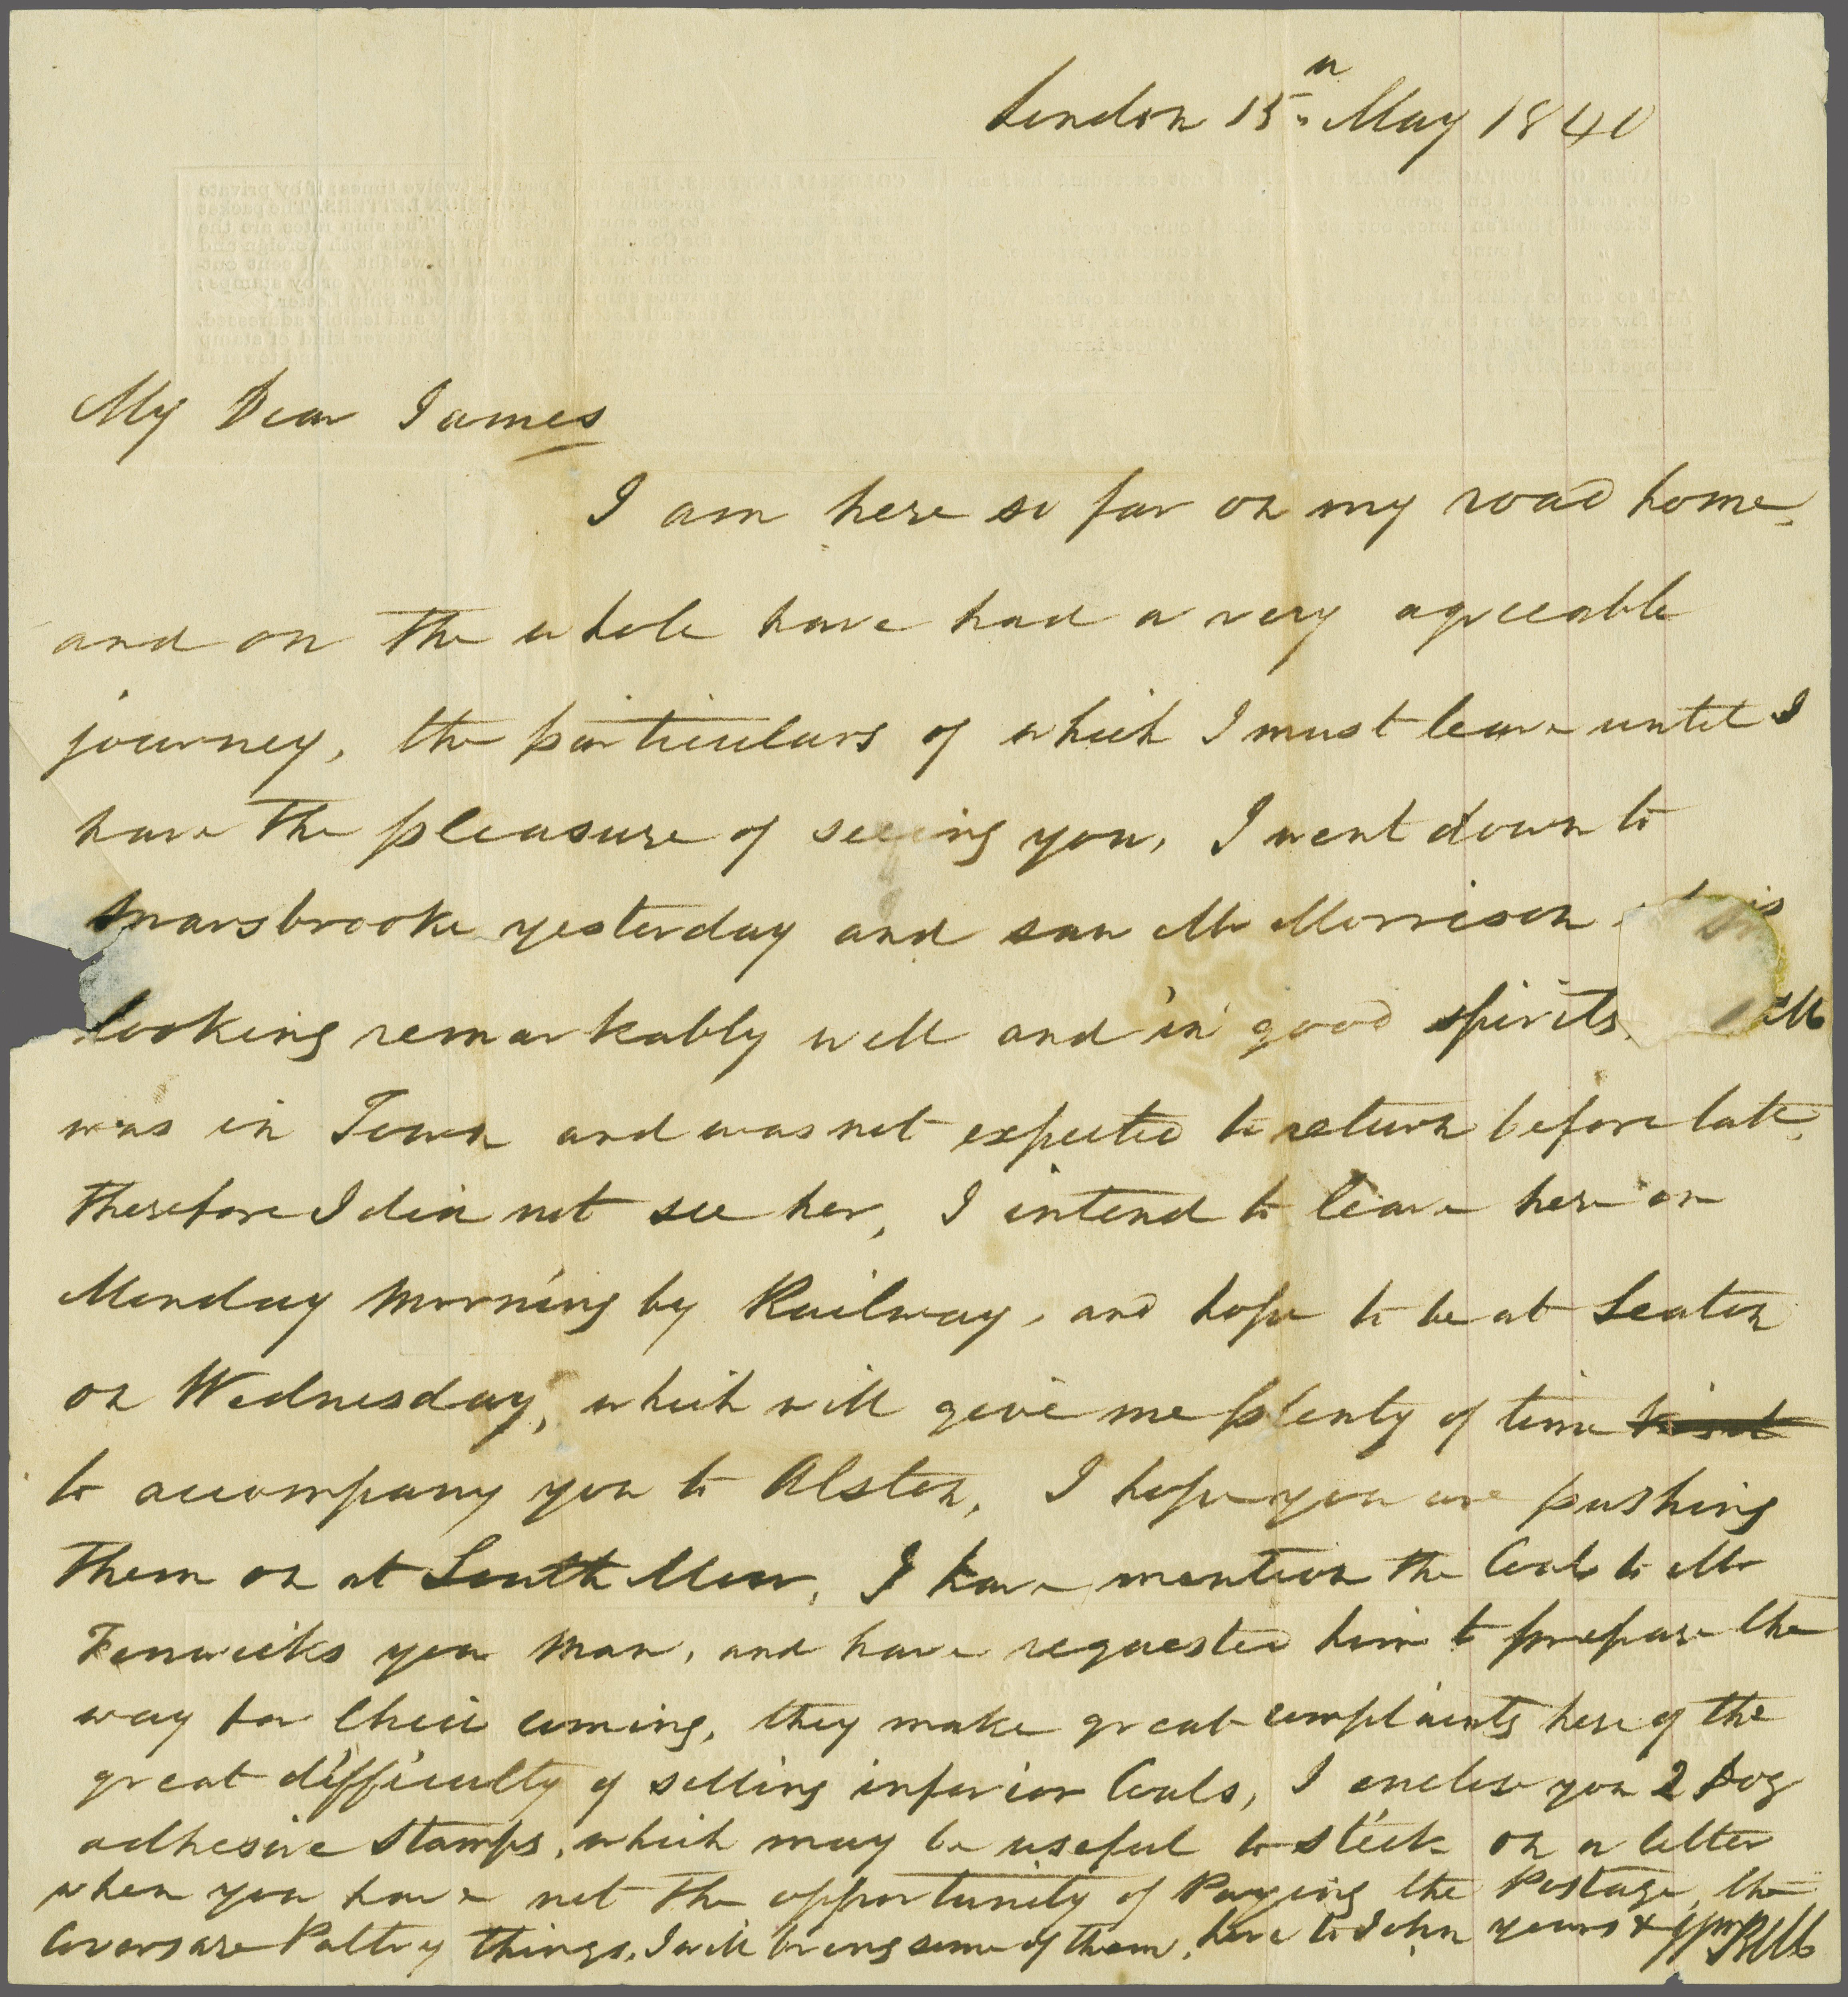 London 15th May 1840
My Dear James
I am here so far on my road home,
and on the whole have had a very agreeable
journey, the particulars of which I must leave until I
have the pleasure of seeing you, I went down to
yesterday and saw Mr Morrison
looking remarkably well and in good spirits,
was in Town and was not expected to return before late,
therefore I did not see her, I intend to leave here on
Monday morning by Railway, and hope to be at Seaton
on Wednesday, which will give me plenty of time
to accompany you to Alston, I hope you are pushing
them on at South Moor, I have mention the Coals to Mr
Fenwicks you man, and have requested him to prepare the
way for their coming, they make great complaints here of the
great difficulty of selling inferior Coals, I enclose you 2 Doz
adhesive Stamps, which may be useful to stick on a letter
when you have not the opportunity of Paying the Postage, the
Covers are Paltry things, I will bring some of them, love to John yours &